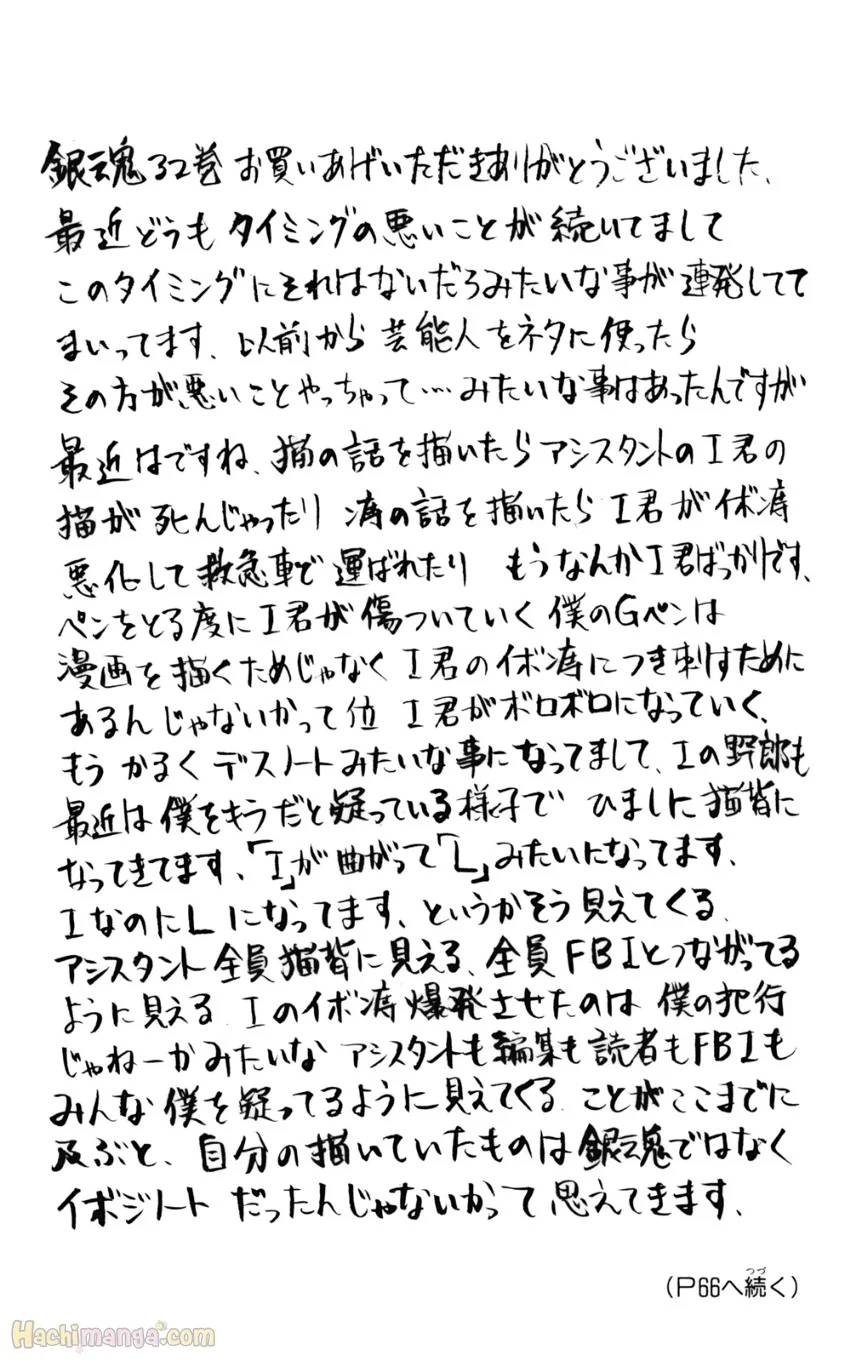 銀魂32巻お買いあげいただきありがとうございました、
最近どうもタイミングの悪いことが続いてまして
このタイミングにそれはないだろみたいな事が連発してて
まいってます、以前から芸能人をネタに使ったら
その方が悪いことやっちゃって…みたいな事はあったんですが
最近はですね、猫の話を描いたらアシスタントのI君の
猫が死んじゃったり 痔の話を描いたらI君がイボ痔
悪化して救急車で運ばれたり もうなんかI君ばっかりです、
ペンをとる度にI君が傷ついていく 僕のGペンは
漫画を描くためじゃなくI君のイボ痔につき刺すために
あるんじゃないかって位 I君がボロボロになっていく、
もうかるくデスノートみたいな事になってまして、Iの野郎も
最近は僕をキラだと疑っている様子で ひましに猫背に
なってきてます、「I」が曲がって「L」みたいになってます、
IなのにLになってます、というかそう見えてくる、
アシスタント全員猫背に見える、全員FBIとつながってる
ように見える Iのイボ痔爆発させたのは 僕の犯行
じゃねーかみたいな アシスタントも編集も読者もFBIも
みんな僕を疑ってるように見えてくる、ことがここまでに
及ぶと、自分の描いていたものは銀魂ではなく
イボジノート だったんじゃないかって思えてきます、
(P66へ続く)
つづ
Hachimanga.com